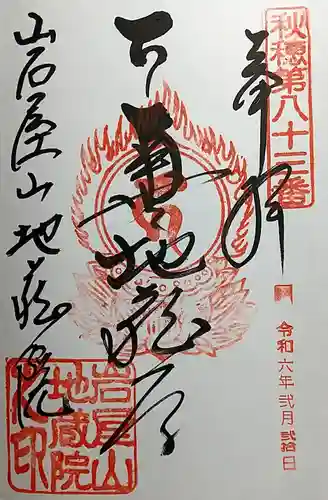 秋穂第八十三番
奉拝
万善地蔵尊
令和六年弐月弐拾日
山石屋山地蔵院
岩屋山
地蔵院
之印